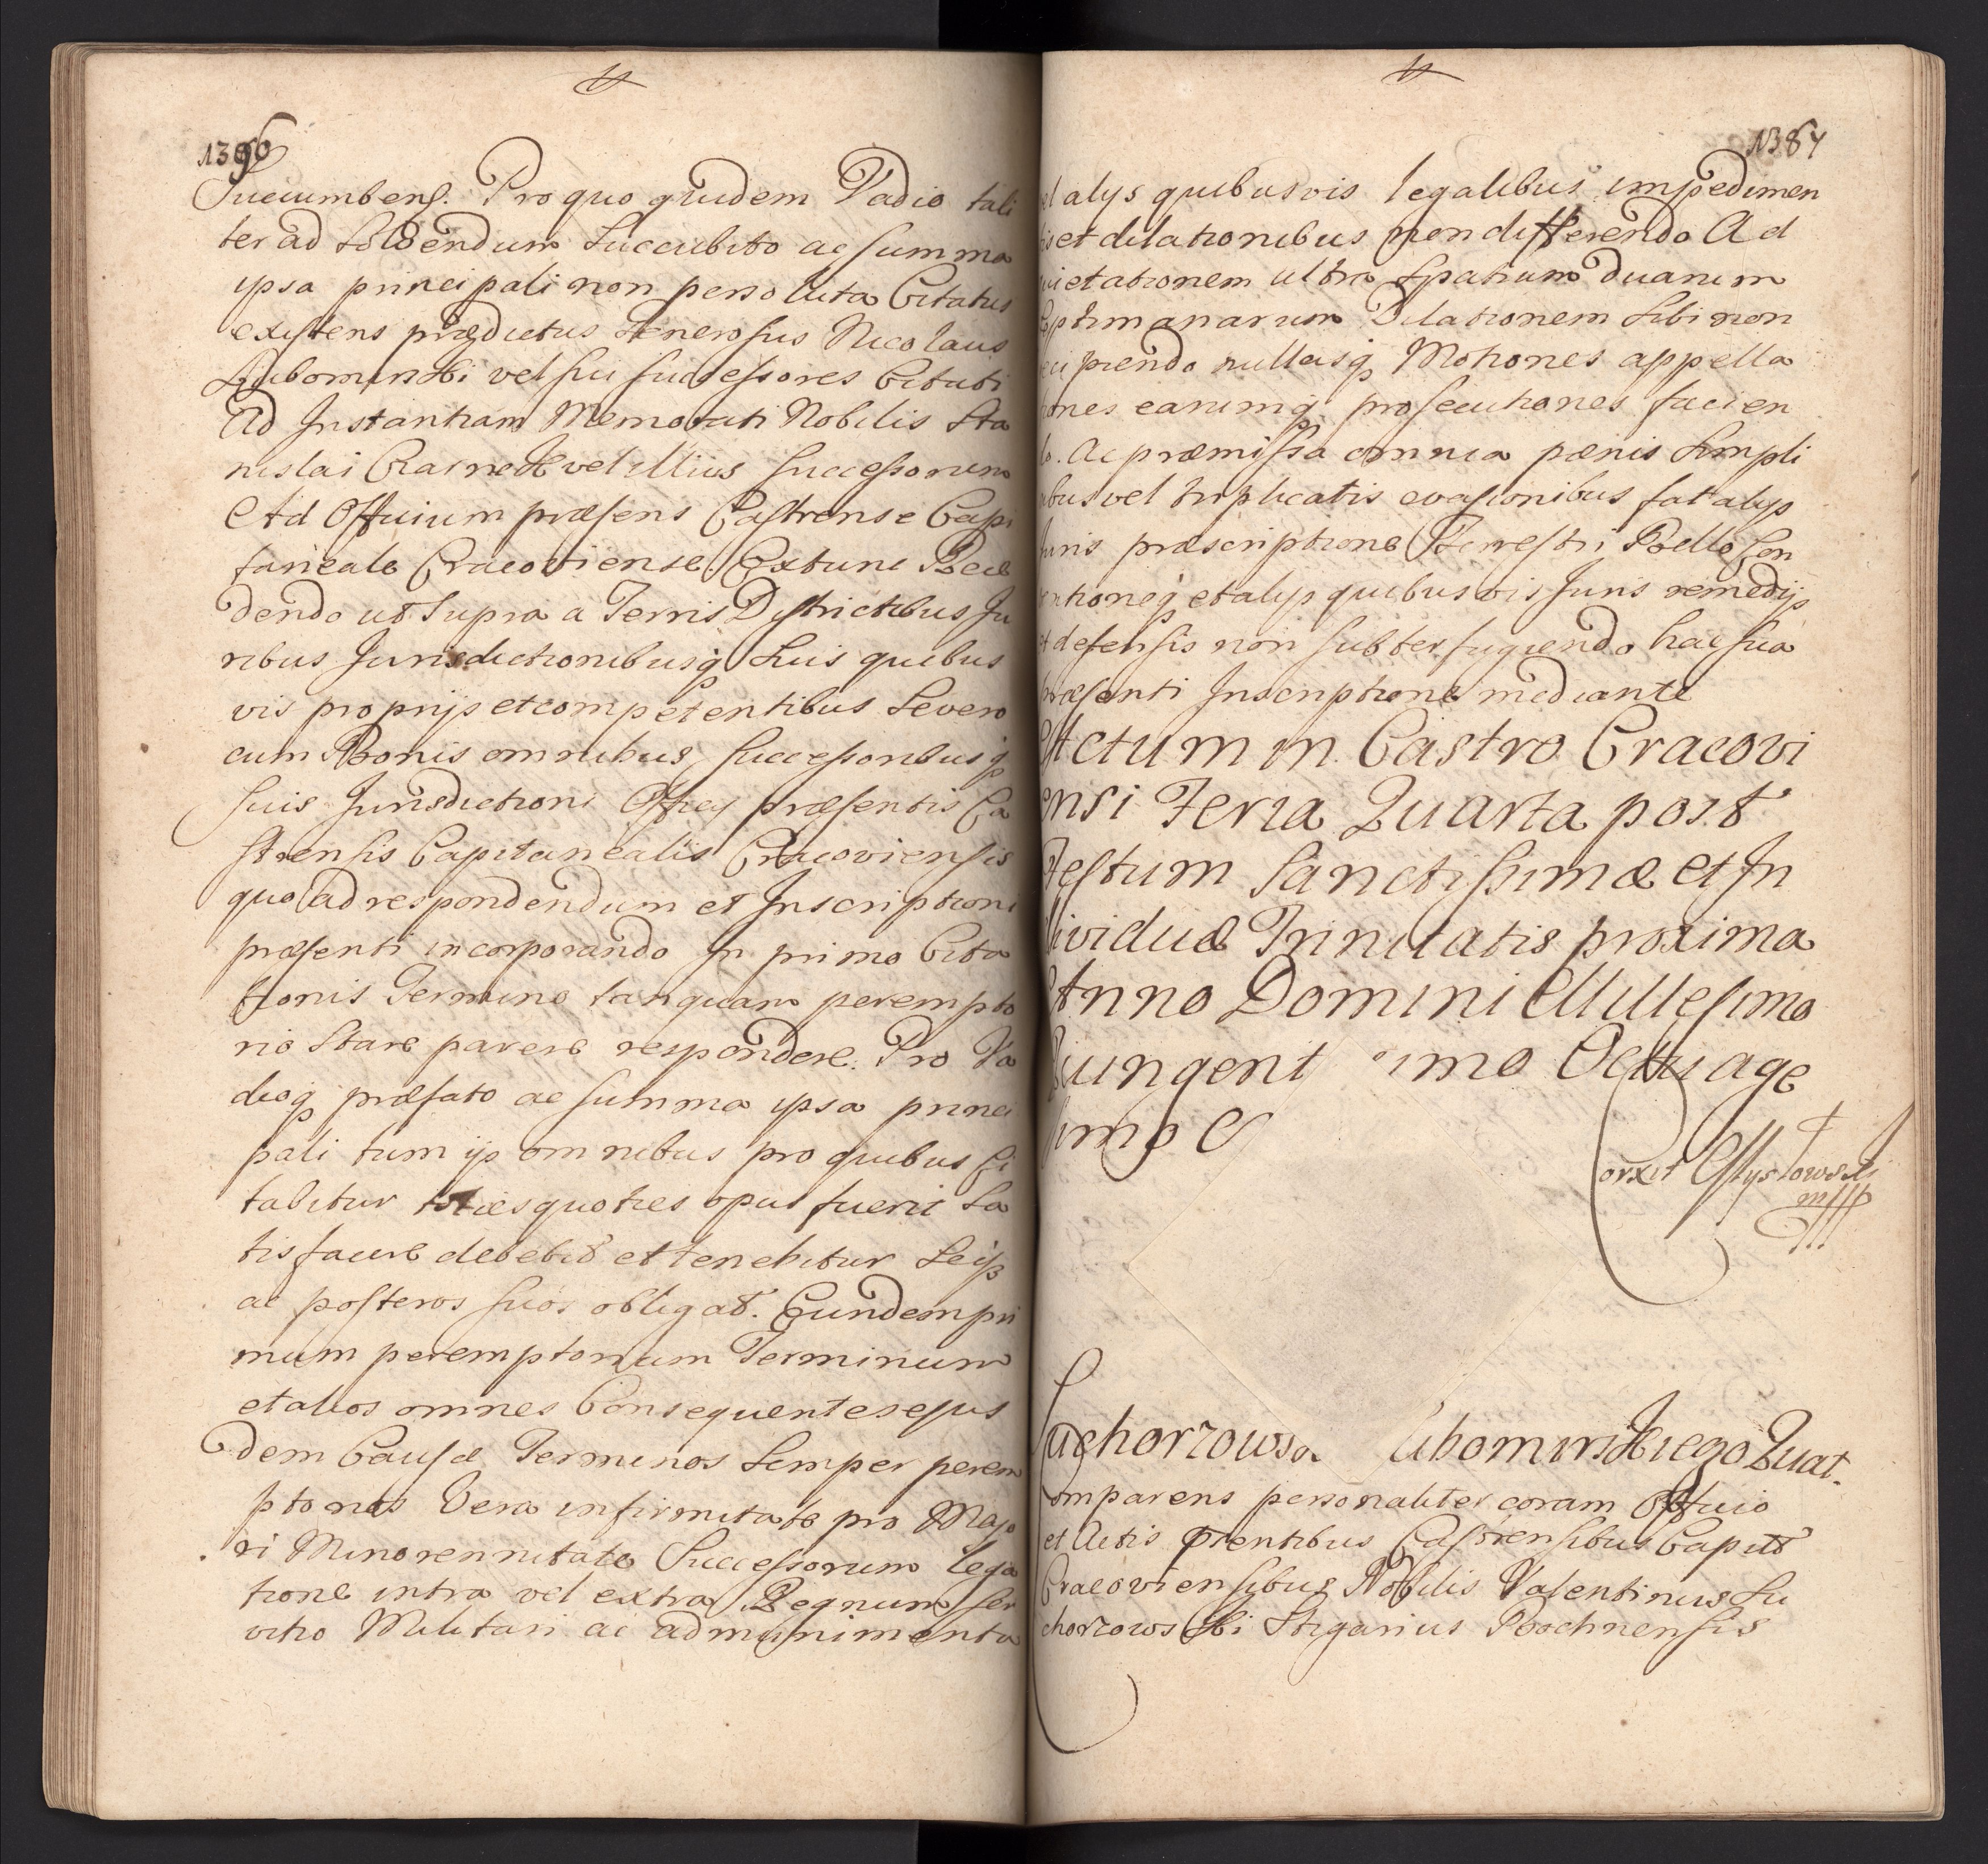 1386
Sucumbens. Pro quo quidem Vadio tali
ter ad Solvendum Succubito ac summa
ipsa principali non persoluta Citatus
existens prædictus Generosus Nicolaus
Liubomirski vel sui successores Citati
Ad Instantiam Memorati Nobilis Sta
nislai vel illius successorum
Ad Officium præsens Castrense Capi
taneale Cracoviense Extunc Rece
dendo ut supra a Terris Districtibus Ju
ribus Jurisdictionibusq Suis quibus
vis proprijs et competentibus Severo
cum Bonis omnibus, Successoribusq
suis Jurisdictioni Officy præsentis Ca
strensis Capitanealis Cracoviensis
quo ad respondendum et Inscriptioni
præsenti incorporando In primo Cita
tionis Termino tanquam perempto
rio Stare parere respondere. Pro Va
dioq præfato ac summa ipsa princi
pali tum ijs omnibus pro quibus Ci
tabitur toties quoties opus fuerit Sa
tisfacere debebit et tenebitur Seip
ac posteros suos obligat. Eundem pri
mum peremptorium Terminum
et alios omnes Consequentes ejus
dem Causæ Terminos Semper perem
ptorios Vera infirmitate pro Majo
ri Minorennitate Successorum lega
tione intra vel extra Regnum ser
vitio Militari ac ad munimenta
1387
el alys quibusvis legalibus impedimen
tis et dilationibus non differendo Ad
quietationem ultra Spatium duarum
Septimanarum Dilationem Sibi non
recipiendo nullasq Motiones appella
tiones earumq prosecutiones facien
do. Ac præmissa omnia pænis Simpli
cibus vel triplicatis evasionibus fatalys
Juris præscriptione Terrestri Bello
q et alijs quibusvis Juris remedijs
et defensis non subterfugiendo hac sua
præsenti Inscriptione mediante
Actum in Castro Cracovi
ensi Feria Quarta post
Festum Sanctissimæ et In
dividuæ Trinitatis proxima
Anno Domini Millesimo
Quingent imo Octuage
simo
Corxit
mpp
Suchorzows Lubomirskiego Quat.
Comparens personaliter coram Officio
et Actis prentibus Castrensibus Capit
Cracoviensibus Nobilis Valentinus Su
chorzowski Stigarius Bochnensis